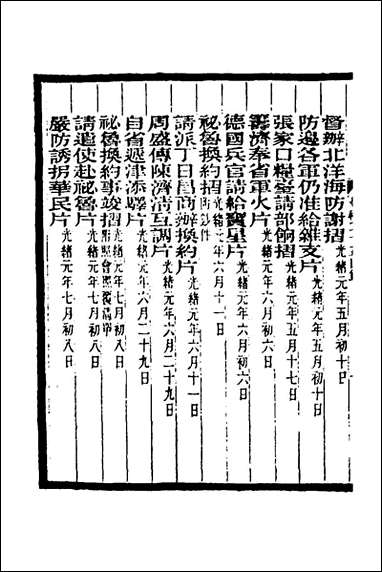 督辦北洋海防謝摺光緒元年五月初十日
防邊各軍仍准給雜支片光緒元年五月初十日
張家口糧臺請部餉摺光緒元年五月十七日
籌濟奉省軍火片光緒元年六月初六日
德國兵官請給寶星片光緒元年六月初六日
祕魯換約摺附鈔件光緒元年六月十一日
請派丁日昌商辦換約片光緒元年六月十一日
周盛傳陳濟清互調片光緒元年六月二十九日
自省遞津添驛片光緒元年六月二十九日
祕魯換約事竣摺附照會照覆清單光緒元年七月初八日
請遣使赴祕魯片光緒元年七月初八日
嚴防誘拐華民片光緒元年七月初八日